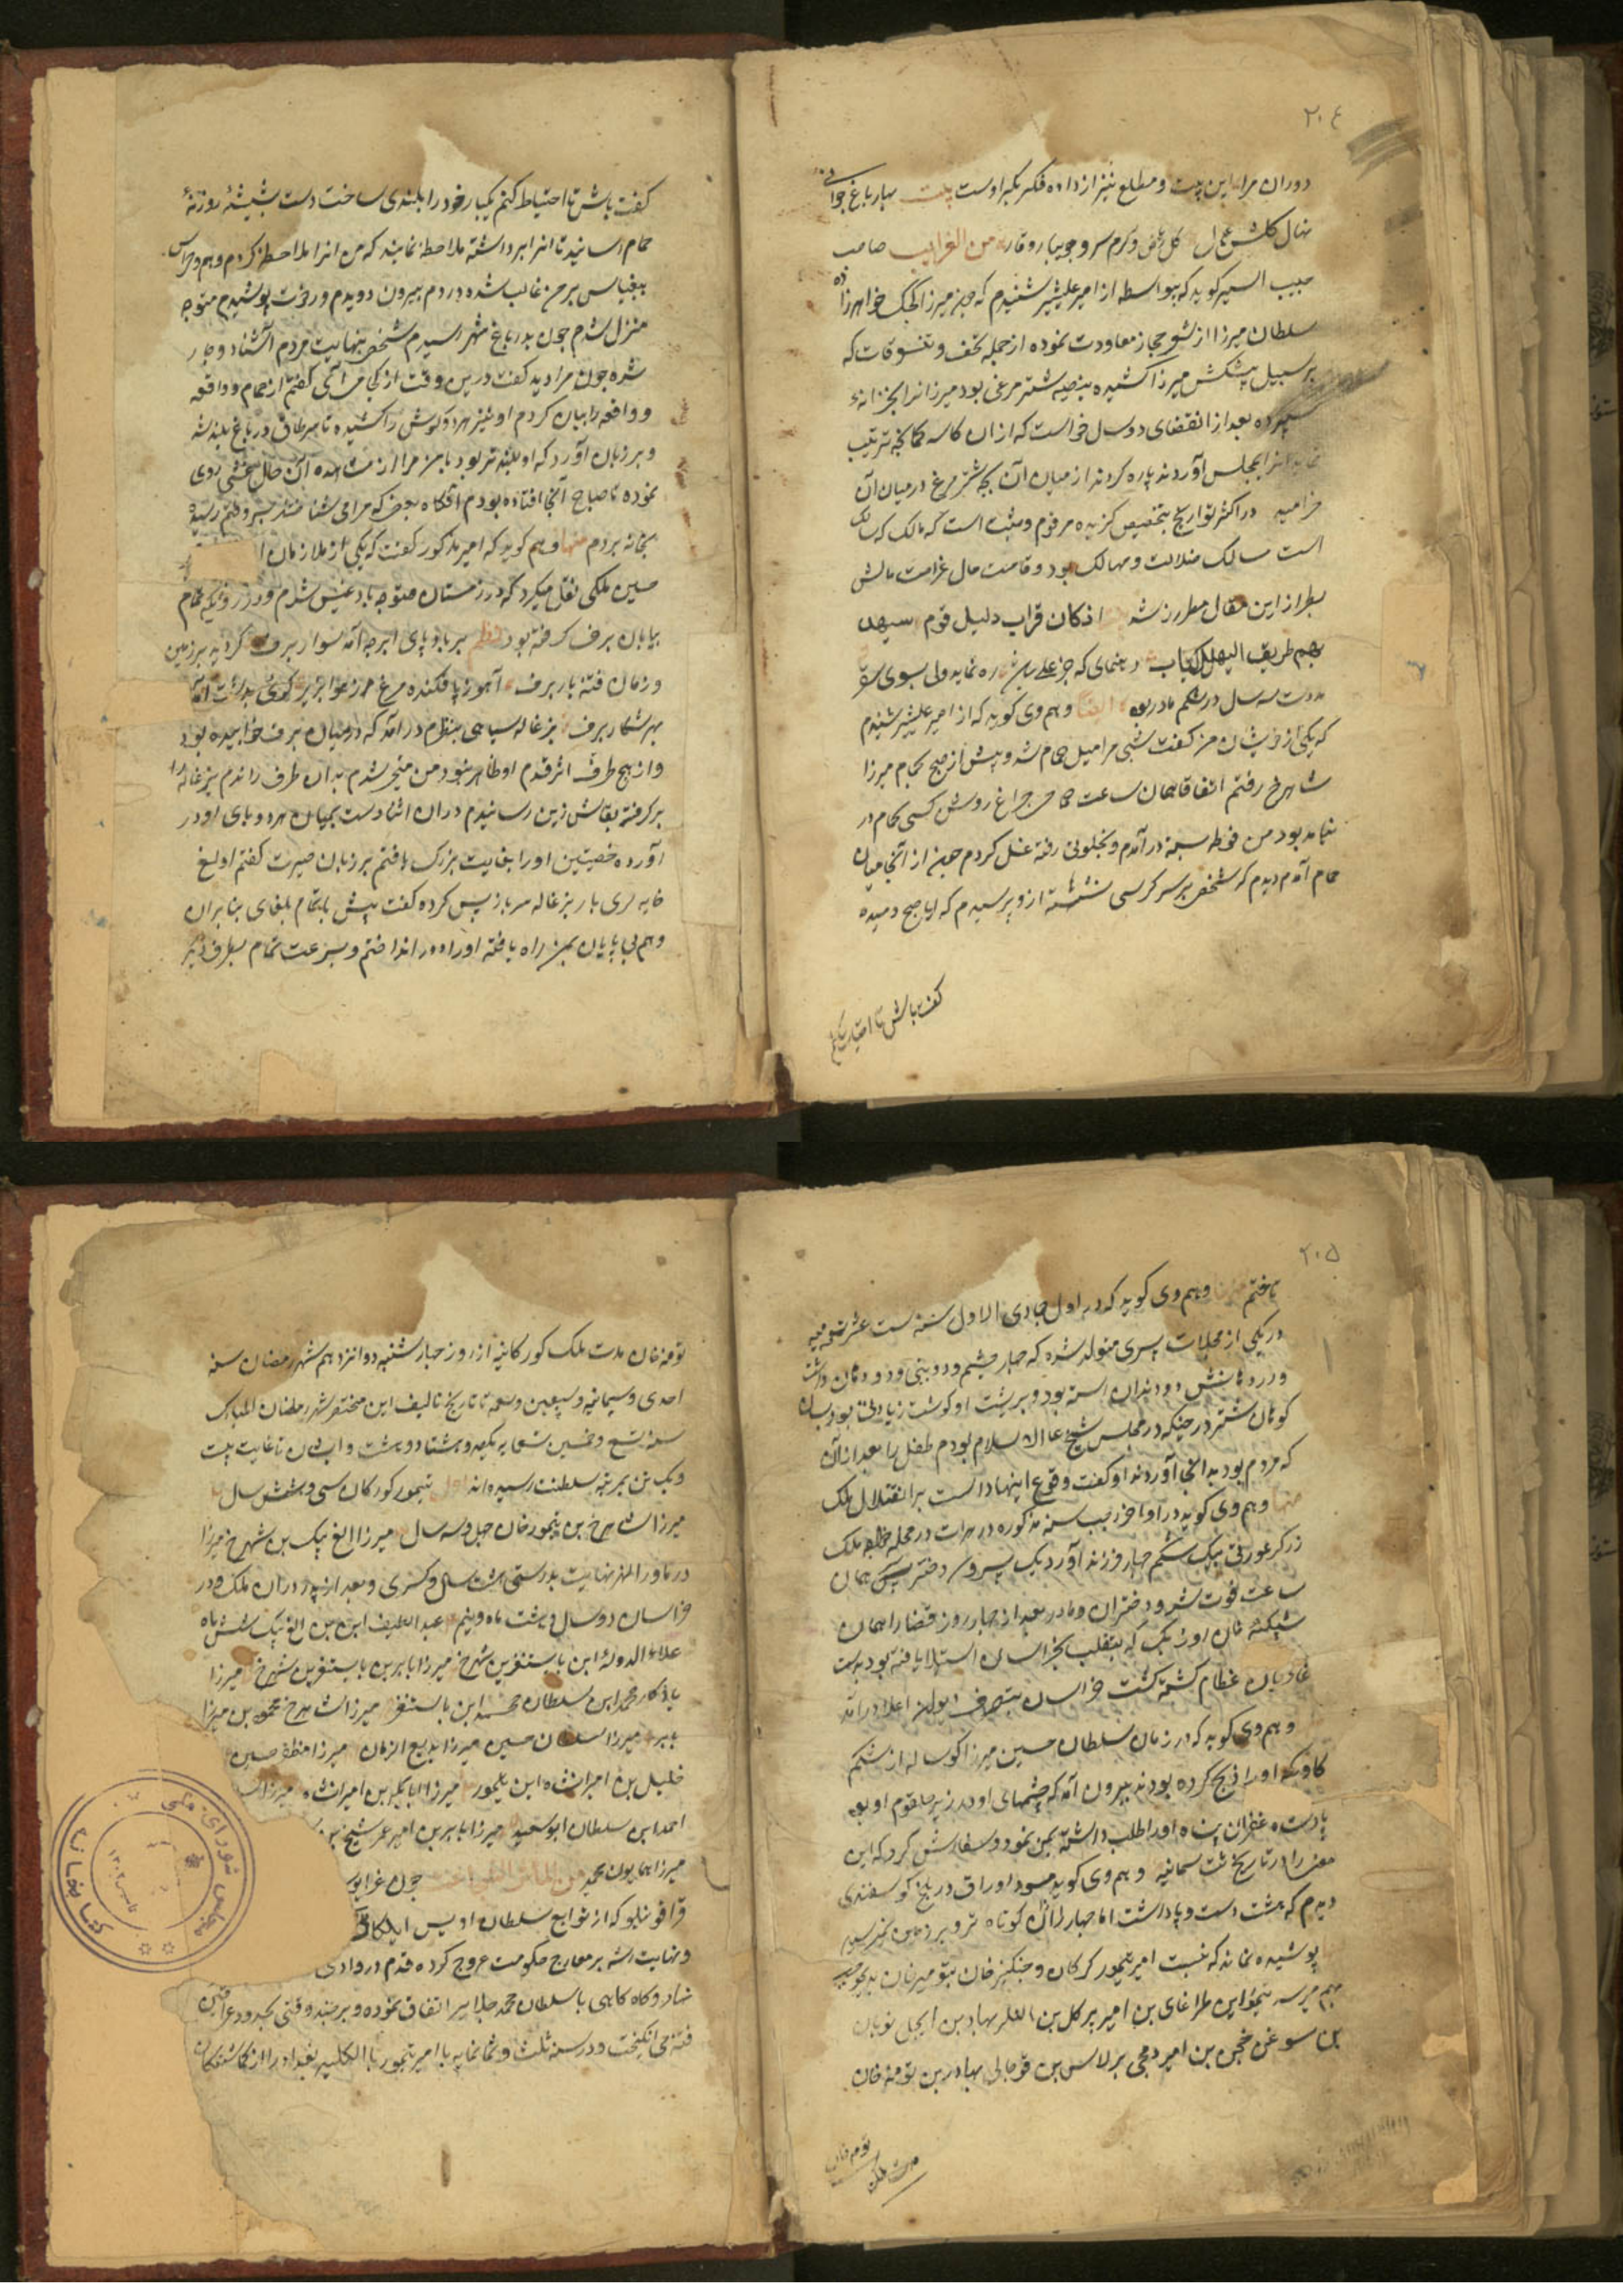 ۲۰۴
دوران مرا این بیت و مطلع نیز از داده فکر بکر اوست بیت بهار باغ جوانی
نهال گلشن گل ریاض و کرم سرو جویبار وقار من الغرایب صاحب
حبیب السیر گوید که بیواسطه از امیر علیشیر شنیدم که چون میرزا کیجک خواهرزاده
سلطان میرزا از سفر حجاز معاودت نموده از جمله تحف و تنسوقات که
بر سبیل پیشکش میرزا کشیده بیضه شترمرغی بود میرزا انرا بخزانه
سپرده بعد از انقضای دو سال خواست که ازان کاسه کمانچه ترتیب
نماید انرا بمجلس آوردند پاره کردند از میان آن بچه شترمرغ در میان آن
خرامید در اکثر تواریخ بتخصیص گزیده مرقوم و مثبت است که مالک که سالک
است مسالک ضلالت و مهالک بود و قامت حال غرامت مالش
بطراز این مقال مطرز شد اذکان قراب دلیل قوم سیهدی
بهم طریق الهالکیناب رهنمای که جز علی باشد ره نماید ولی بسوی سقر
مدت سه سال در شکم مادر بود ایضا و هم وی گوید که از امیر علیشیر شنیدم
که یکی از خویشان من گفت شبی مرا میل حمام شد و پیش از صبح بحمام میرزا
شاهرخ رفتم اتفاقا همان ساعت حمامی چراغ روشن کسی بحمام در
نیامده بود من فوطه بسته درآمدم و بخلوتی رفته غسل کردم چون از آنجا میان
حمام آمدم دیدم که شخصی بر سر کرسی نشسته ازو پرسیدم که آیا صبح دمیده
گفت باش تا احتیاط کنم
گفت باش تا احتیاط کنم یکبار خود را بلند ساخت دست بشیشه روزنه
حمام رسانید تا انرا برداشته ملاحظه نماید که من انرا ملاحظه کردم و هم و هراس
بیقیاس بر من غالب شده در دم بیرون دویدم و رخت پوشیدم متوجه
منزل شدم چون بدر باغ شهر رسیدم شخصی بنهایت مردم آشنا دوچار
شده چون مرا دید گفت درین وقت از کجا می آئی گفتم از حمام و واقعه
و واقعه را بیان کردم او نیز هر دو گوش را کشیده تا بسر طاق در باغ بلند شد
و بر زبان آورد که او بلندتر بود یا من مرا از مشاهده این حال غشی روی
نموده تا صباح آنجا افتاده بودم آنگاه بعضی که مرا می شناختند بسر وقتم رسیده
بخانه بردم منها و هم گوید که امیر مذکور گفت که یکی از ملازمان
حسین ملکی نقل میکرد که در زمستان متوجه بادغیس شدم و در روزیکه تمام
بیابان برف گرفته بود نظم بر باد پای ابر چه آمد سوار برف کردید بر زمین
و زمان فتنه بار برف آهو ز پا فکنده مرغ از هوا بزیر گوی
بهر شکار برف بزغاله سیاهی بنظرم درآمد که در میان برف خوابیده بود
و از هیچ طرف اثر قدم او ظاهر نبود من متحیر شدم بدان طرف راندم بزغاله را
برگرفته بقاش زین رسانیدم دران اثنا دست بمیان هر دو پای او در
آورده خصیتین او را بغایت بزرگ یافتم بر زبان حیرت گفتم اولغ
خایه لری بار بزغاله سر باز پس کرده گفت بیش باتمام بلغای بنابران
وهم بی پایان بمن راه یافته او را دور انداختم و بسرعت تمام بطرف دیگر
۲۰۵
تاختم و هم وی گوید که در اول جمادی الاول سنه ست عشر تسعمایه
در یکی از محلات پسری متولد شده که چهار چشم و دو بینی و دو دهان داشت
و در دهانش دو دندان رسته بود و بر پشت او گوشت زیادتی بود بسان
کوهان شتر در حینکه در مجلس شیخ عالاسلام بودم طفل را بعد از آن
که مرده بود بدانجا آوردند او گفت وقوع اینها دالست بر انتقال ملک
منها و هم وی گوید در اواخر رجب سنه مذکوره در هرات در محله خواجه ملک
زرگر عورتی بیک شکم چهار فرزند آورد یک پسر و سه دختر پسر همان
ساعت فوت شد و دختران و مادر بعد از چهار روز قضا را همان
شیبک خان اوزبک که بتغلب بخراسان استیلا یافته بود بدست
غازیان عظام کشته گشت خراسان بتصرف دیوان اعلا درآمد
و هم وی گوید که در زمان سلطان حسین میرزا گوساله از شکم
گاویکه او را ذبح کرده بودند بیرون آمد که چشمهای او در زیر حلقوم او بود
پادشاه غفران پناه او را طلب داشته بمن نمود و سفارش کرد که این
معنی را در تاریخ ثبت نمایند و هم وی گوید مسود اوراق در بلخ گوسفندی
دیدم که هشت دست و پا داشت اما چهار از آن کوتاه تر و بر زمین نمیرسید
پوشیده نماند که نسبت امیر تیمور گورکان و چنگیز خان بتومنه خان بدین موجب
بهم میرسد تیمور ابن طراغای بن امیر برکل بن النکر بهادر بن ایجل نویان
بن سوغن خجن بن امیر دمجی برلاس بن قوجالی بهادر بن تومنه خان
تومنه خان مدت ملک
تومنه خان مدت ملک گورکانیه از روز چهارشنبه دوازدهم شهر رمضان سنه
احدی و سبعین و سبعمایه تا تاریخ تالیف این مختصر شهر رمضان المبارک
سنه تسع و خمسین تسعمایه یکصد و هشتاد و هشت و ایشان تا غایت بیست
و یک تن بمرتبه سلطنت رسیده اند اول تیمور گورکان سی و شش سال
میرزا شاهرخ بن تیمور خان چهل و سه سال میرزا الغ بیک بن شهرخ میرزا
در ماوراء النهر نهایت پدرستی هشت سال و کسری و بعد از پدر دران ملک و در
خراسان دو سال و هشت ماه و نیم عبداللطیف ابن بن الغ بیک شش ماه
علاء الدوله ابن بایسنغر بن شهرخ میرزا بابر بن بایسنغر بن شهرخ میرزا
یادگار محمد ابن سلطان محمد ابن بایسنغر میرزا شاهرخ محمود بن میرزا
بابر میرزا سلطان حسین میرزا بدیع الزمان میرزا مظفر حسین
خلیل بن امیرانشاه ابن تیمور میرزا ابابکر بن امیرانشاه میرزا
احمد ابن سلطان ابوسعید میرزا بابر بن امیر عمر شیخ بن
میرزا همایون محمد من المآثر چون غرایو
قراقوینلو که از توابع سلطان اویس ایلکان
و نهایت رشد بر معارج حکومت عروج کرده قدم در وادی
نهاد و گاه گاهی با سلطان محمد جلایر اتفاق نموده و بر چند وقتی بحدود عراقین
فتنه می انگیخت و در سنه ثلث و ثمانمایه با امیر تیمور بالکلیه بغداد را از
کتابخانه مجلس شورای ملی